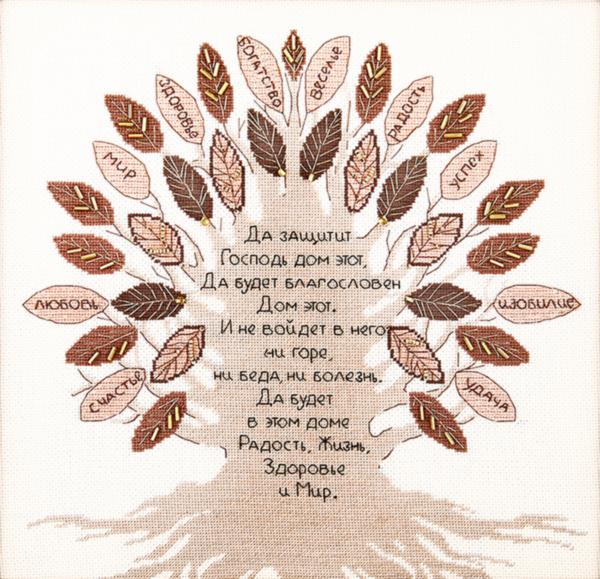 Богатство
Веселье
Здоровье
Радость
Мир
Успех
Любовь
Изобилие
Счастье
Удача
Да защитит
Господь дом этот,
Да будет благословен
Дом этот.
И не войдет в него
ни горе,
ни беда, ни болезнь.
Да будет
в этом доме
Радость, Жизнь,
Здоровье
и Мир.